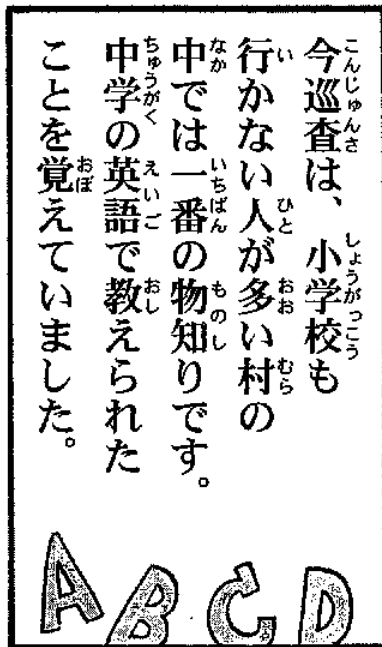 今巡査は、小学校も
行かない人が多い村の
中では一番の物知りです。
中学の英語で教えられた
ことを覚えていました。
ABCD